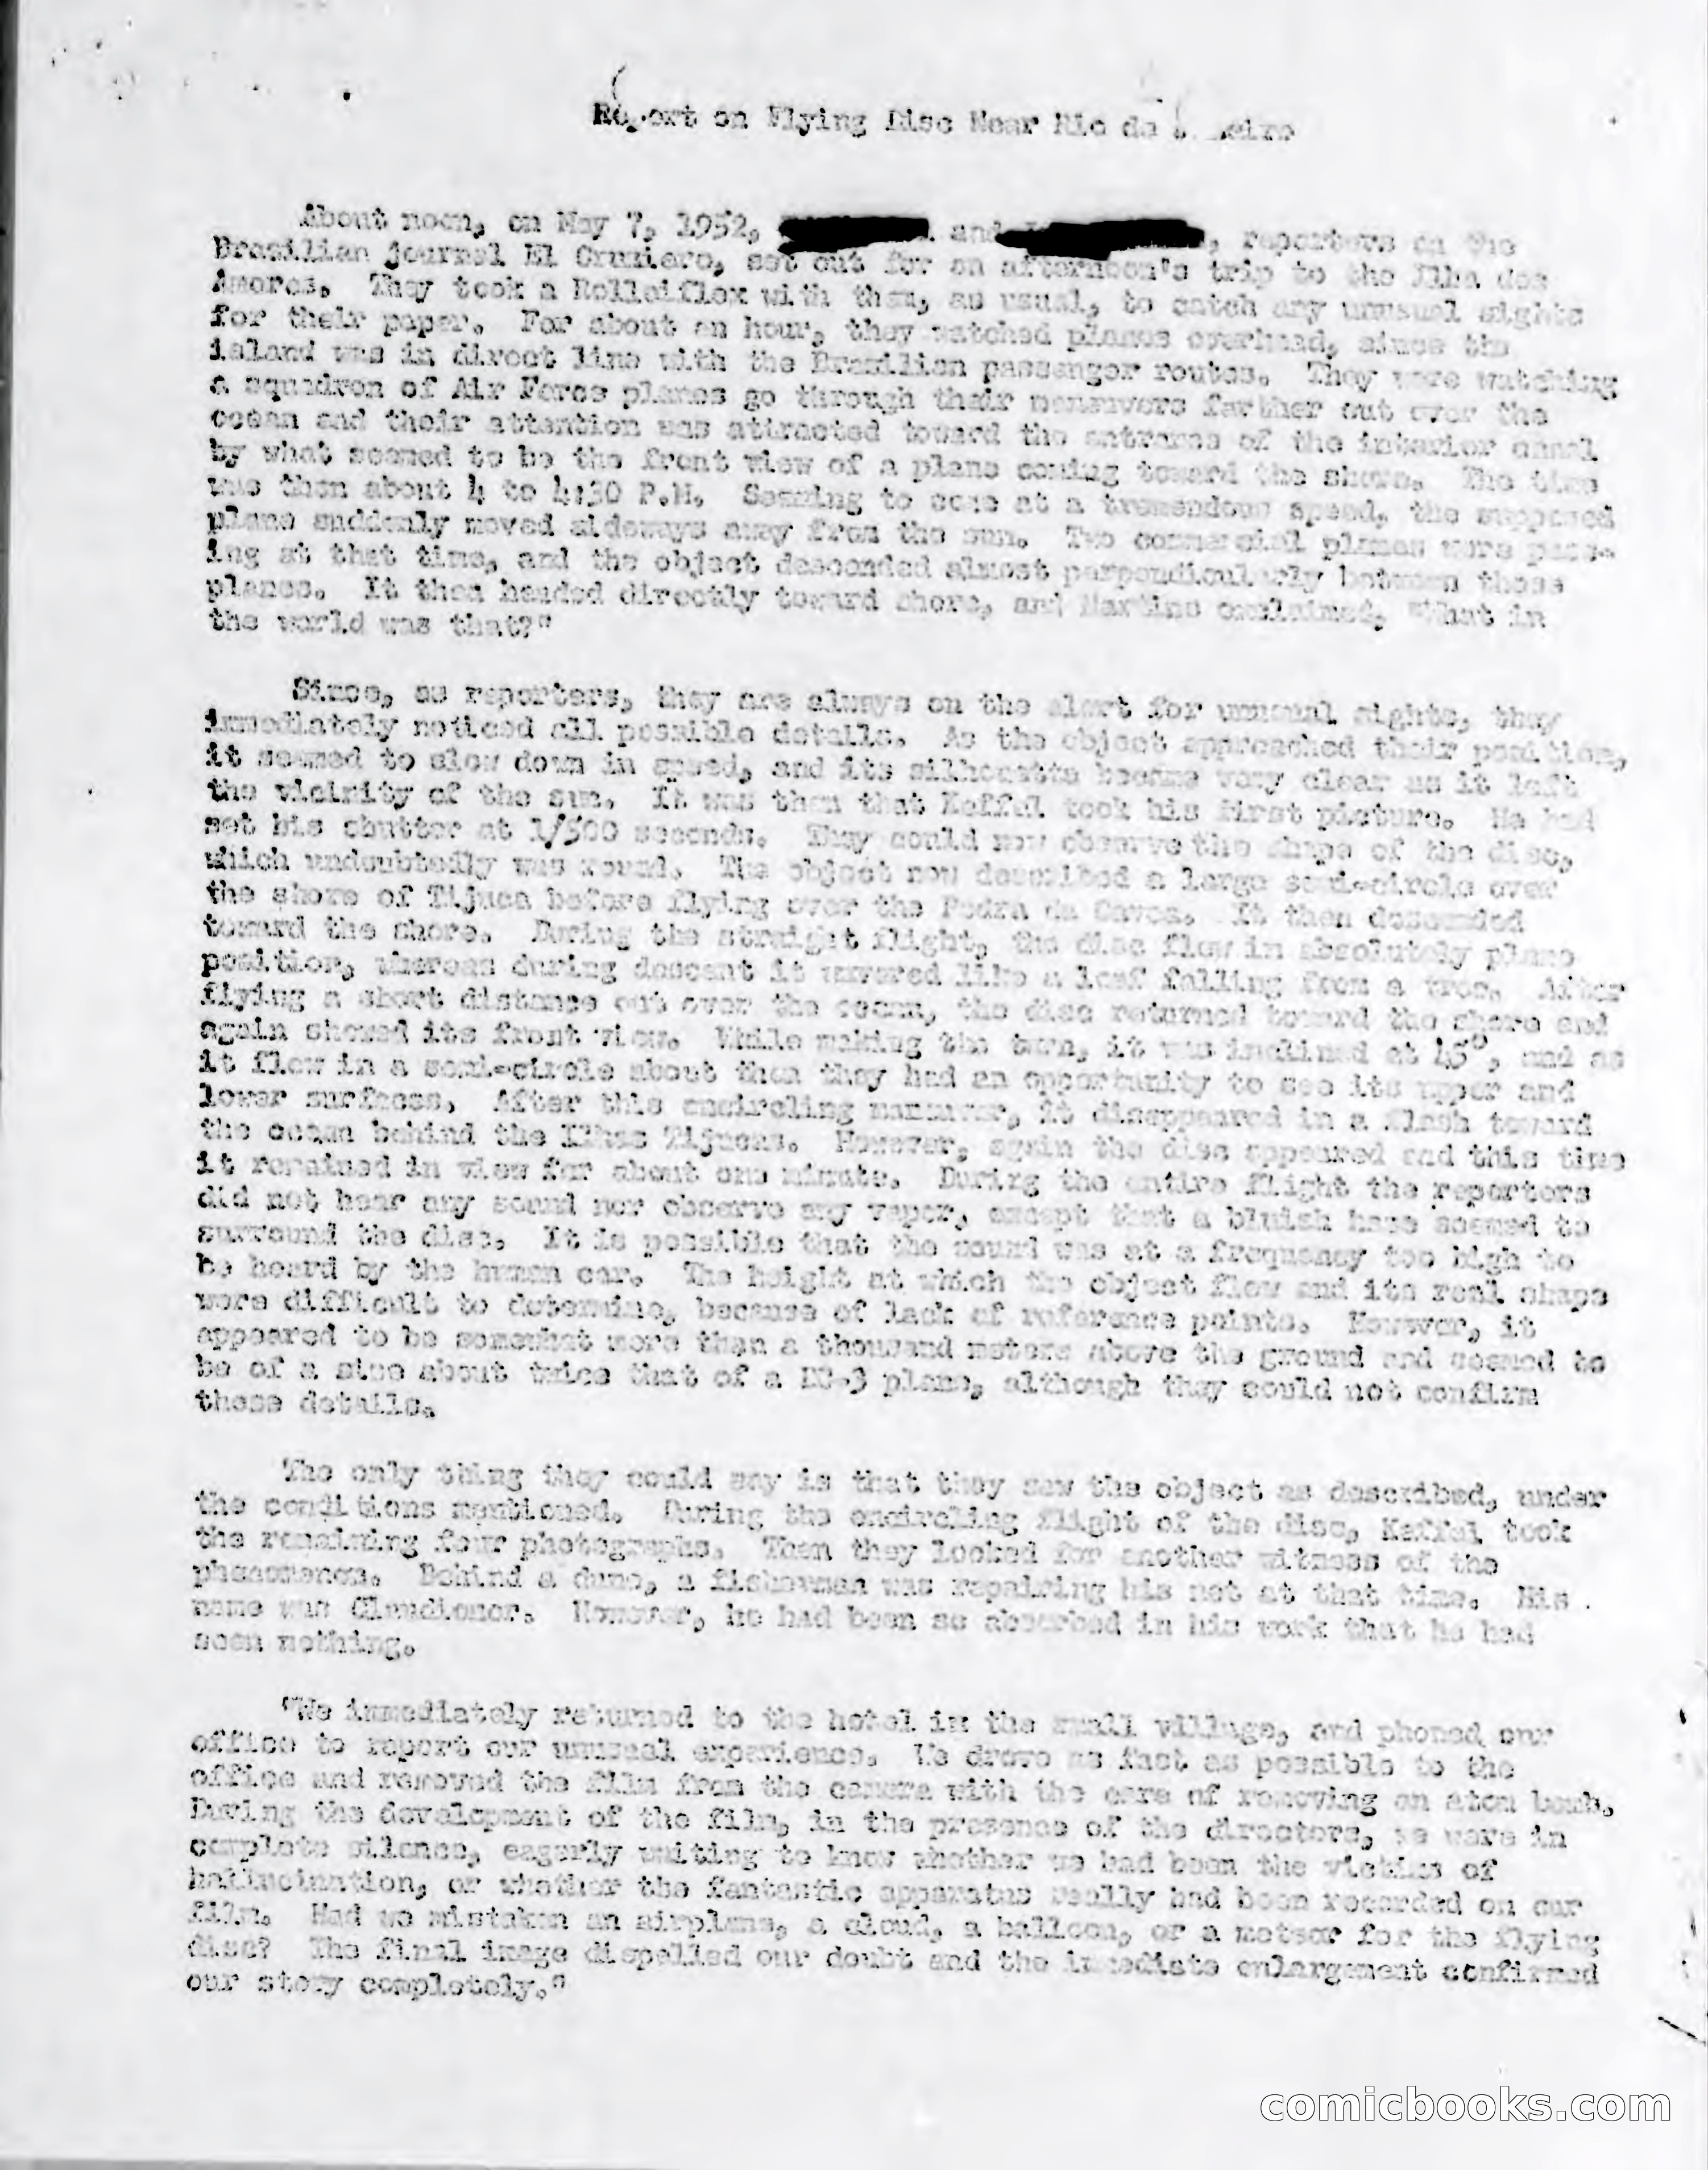 Report on Flying Disc Near Rio de
About noon, on May 7, 1952, and , reporters on the
Brazilian journal El Cruziero, set out for an afternoon's trip to the Ilha dos
Amores. They took a Rolleiflex with them, as usual, to catch any unusual sights
for their paper. For about an hour, they watched planes overhead, since the
island was in direct line with the Brazilian passenger routes. They were watching
a squadron of Air Force planes go through their maneuvers farther out over the
ocean and their attention was attracted toward the entrance of the interior canal
by what seemed to be the front view of a plane coming toward the shore. The time
was then about 4 to 4:30 P.M. Seeming to come at a tremendous speed, the supposed
plane suddenly moved sideways away from the sun. Two commercial planes were pass-
ing at that time, and the object descended almost perpendicularly between those
planes. It then headed directly toward shore, and Martins exclaimed, "What in
the world was that?"
Since, as reporters, they are always on the alert for unusual sights, they
immediately noticed all possible details. As the object approached their position,
it seemed to slow down in speed, and its silhouette became very clear as it left
the vicinity of the sun. It was then that Keffel took his first picture. He had
set his shutter at 1/500 seconds. They could now observe the shape of the disc,
which undoubtedly was round. The object now described a large semi-circle over
the shore of Tijuca before flying over the Pedra da Gavea. It then descended
toward the shore. During the straight flight, the disc flew in absolutely plane
position, whereas during descent it wavered like a leaf falling from a tree. After
flying a short distance out over the ocean, the disc returned toward the shore and
again showed its front view. While making the turn, it was inclined at 45°, and as
it flew in a semi-circle about then they had an opportunity to see its upper and
lower surfaces. After this encircling maneuver, it disappeared in a flash toward
the ocean behind the Ilhas Tijucas. However, again the disc appeared and this time
it remained in view for about one minute. During the entire flight the reporters
did not hear any sound nor observe any vapor, except that a bluish haze seemed to
surround the disc. It is possible that the sound was at a frequency too high to
be heard by the human ear. The height at which the object flew and its real shape
were difficult to determine, because of lack of reference points. However, it
appeared to be somewhat more than a thousand meters above the ground and seemed to
be of a size about twice that of a DC-3 plane, although they could not confirm
these details.
The only thing they could say is that they saw the object as described, under
the conditions mentioned. During the encircling flight of the disc, Keffel took
the remaining four photographs. Then they looked for another witness of the
phenomenon. Behind a dune, a fisherman was repairing his net at that time. His
name was Claudionor. However, he had been so absorbed in his work that he had
seen nothing.
"We immediately returned to the hotel in the small village, and phoned our
office to report our unusual experience. We drove as fast as possible to the
office and removed the film from the camera with the care of removing an atom bomb.
During the development of the film, in the presence of the directors, we were in
complete silence, eagerly waiting to know whether we had been the victims of
hallucination, or whether the fantastic apparatus really had been recorded on our
film. Had we mistaken an airplane, a cloud, a balloon, or a meteor for the flying
disc? The final image dispelled our doubt and the immediate enlargement confirmed
our story completely."
comicbooks.com